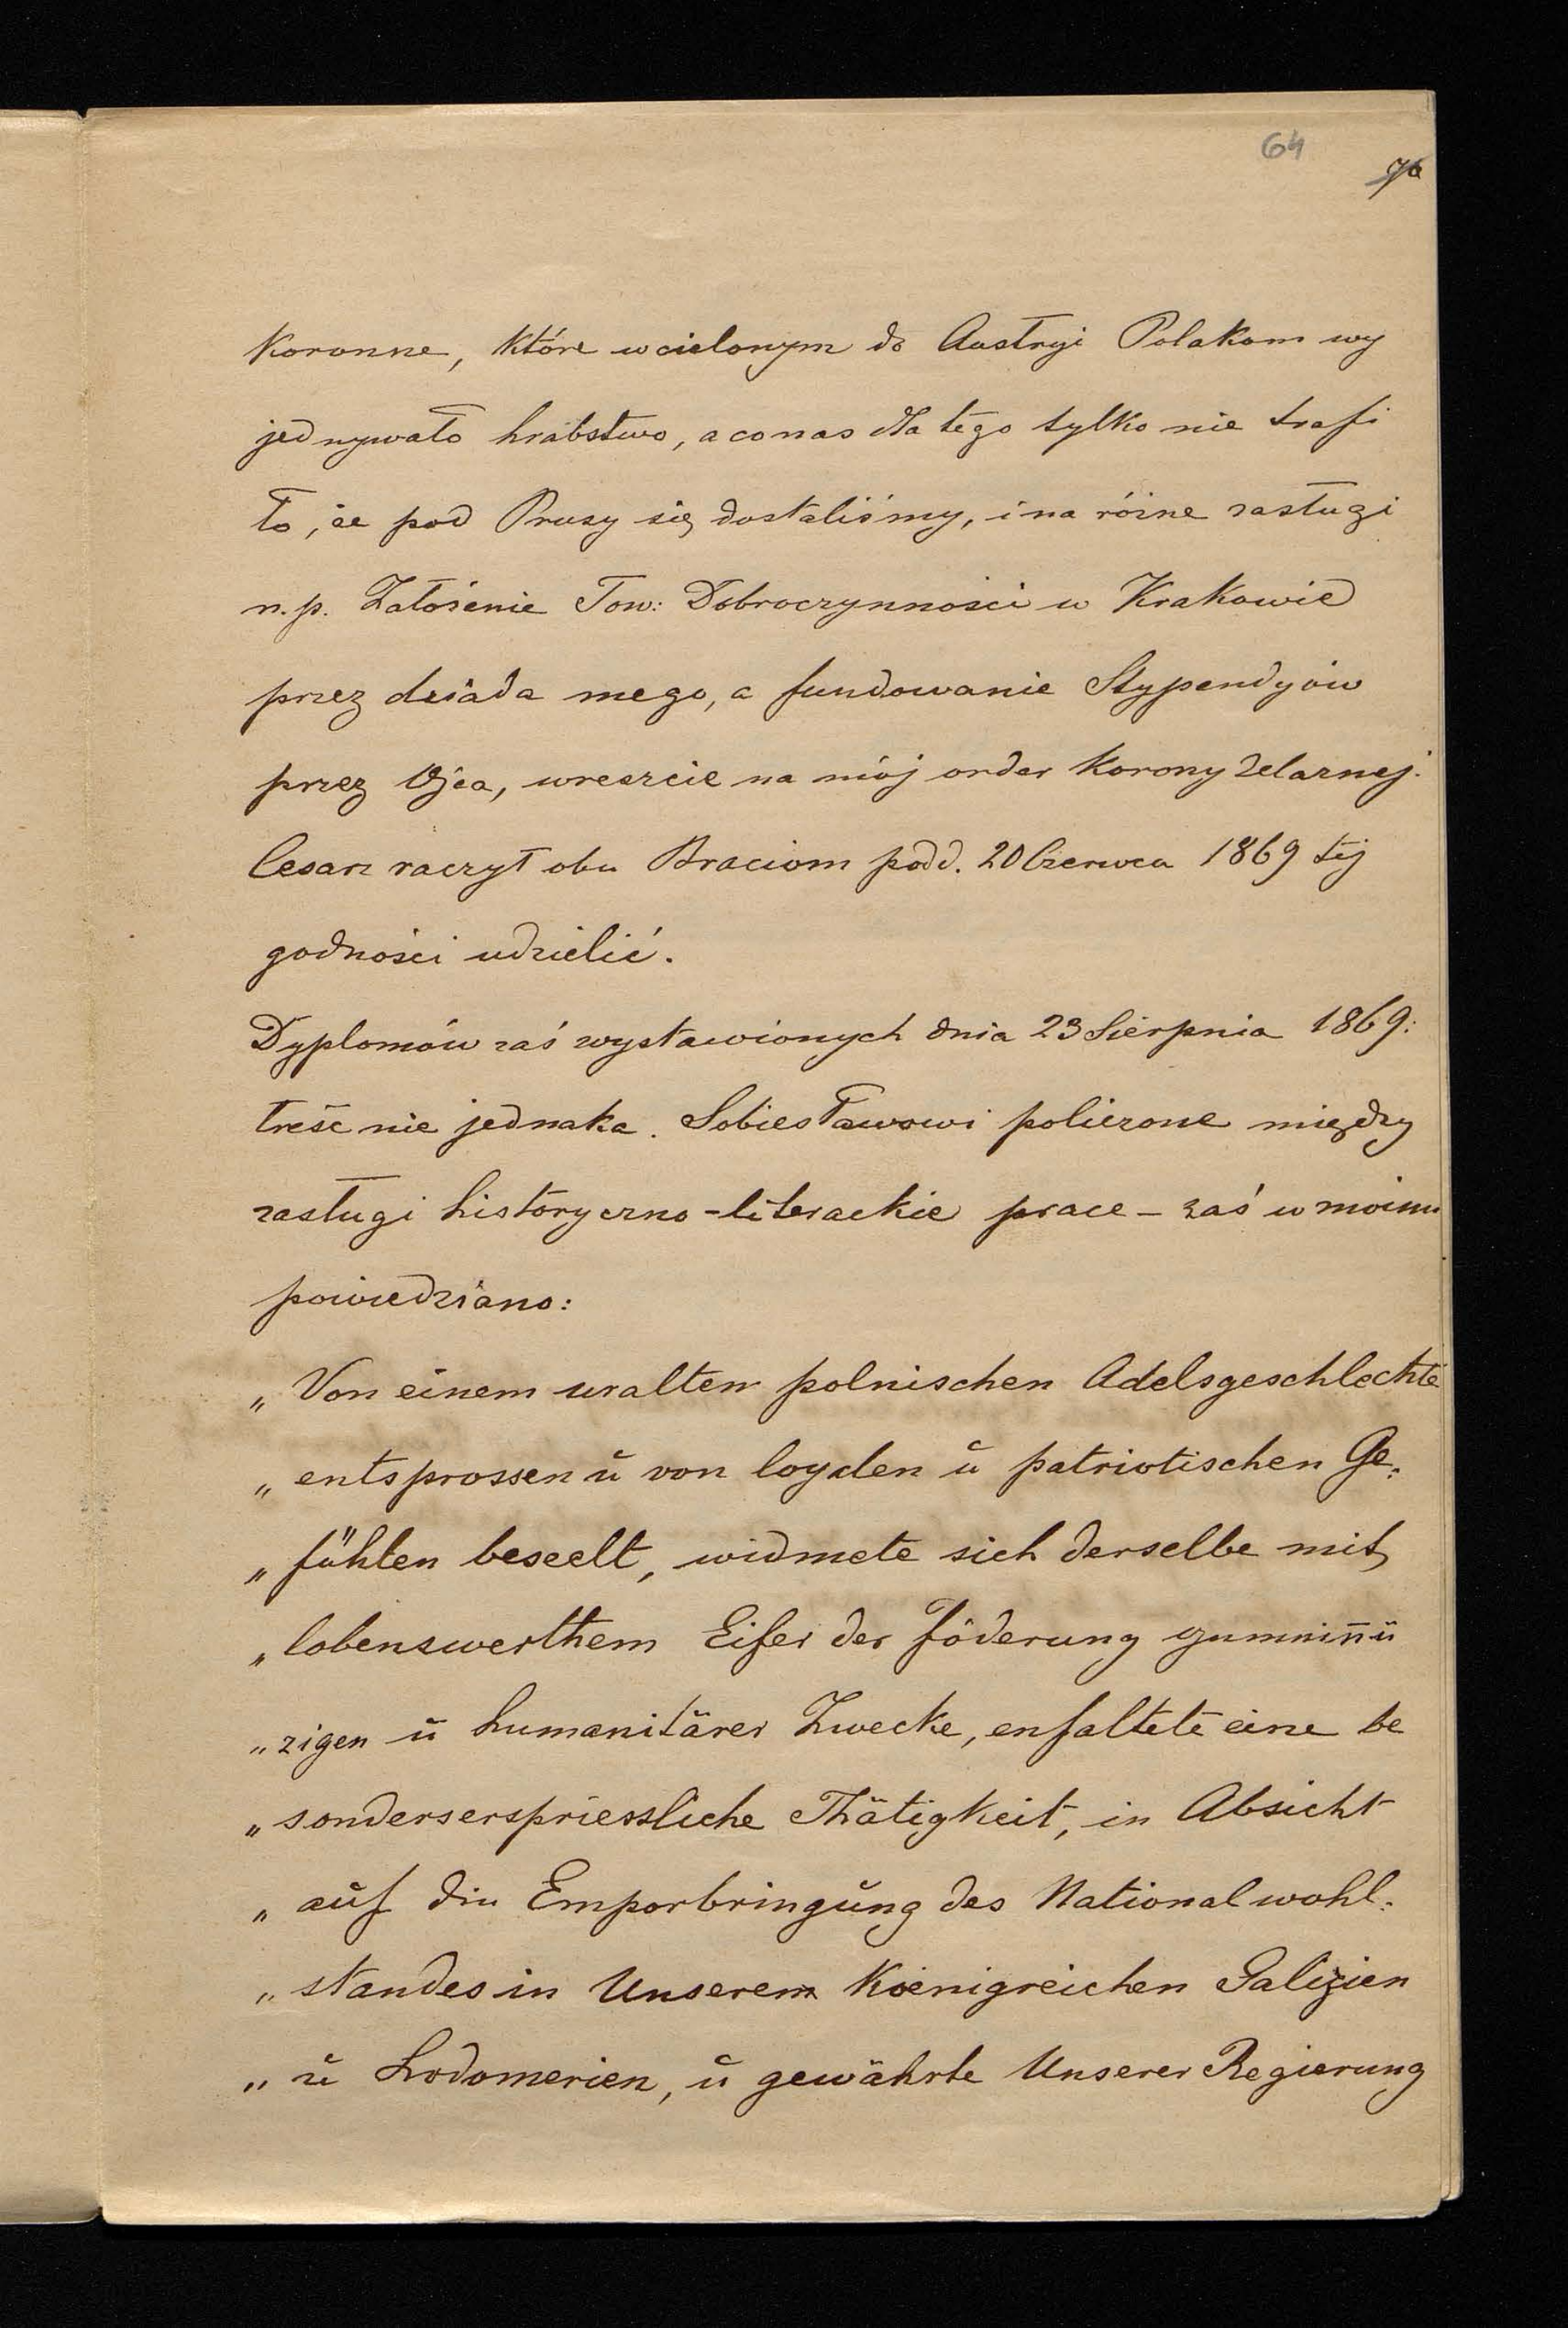 64
koronne, które wcielonym do Austryi Polakom wy
jednywało hrabstwo, a co nas dla tego tylko nie trafi
ło, że pod Prusy się dostaliśmy, i na różne zasługi
n.p. Założenie Tow: Dobroczynności w Krakowie
przez dziada mego, a fundowanie Stypendyów
przez Ojca, wreszcie na mój order Korony Żelaznej.
Cesarz raczył obu Braciom pod d. 20 Czerwca 1869 téj
godności udzielić.
Dyplomów zaś wystawionych dnia 23 Sierpnia 1869:
treść nie jednaka. Sobiesławowi policzone między
zasługi historyczno-literackie prace – zaś w moim
powiedziano:
„ Von einem uralten polnischen Adelsgeschlechte
„ entsprossen ŭ von loyalen ŭ patriotischen Ge:
„ fühlen beseelt, widmete sich derselbe mit
„ lobenswerthem Eifer der Föderung
„ zigen ŭ humanitärer Zwecke, enfaltete eine be
„ sonderserspriessliche Thätigkeit, in Absicht
„ aŭf die Emporbringŭng des Nationalwohl:
„ standes in Unserem Koenigreichen Galizien
„ ŭ Lodomerien, ŭ gewährte Unserer Regierung